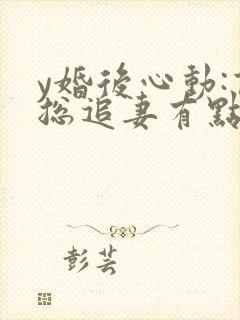 y婚後心動:
總追妻有點
彭芸